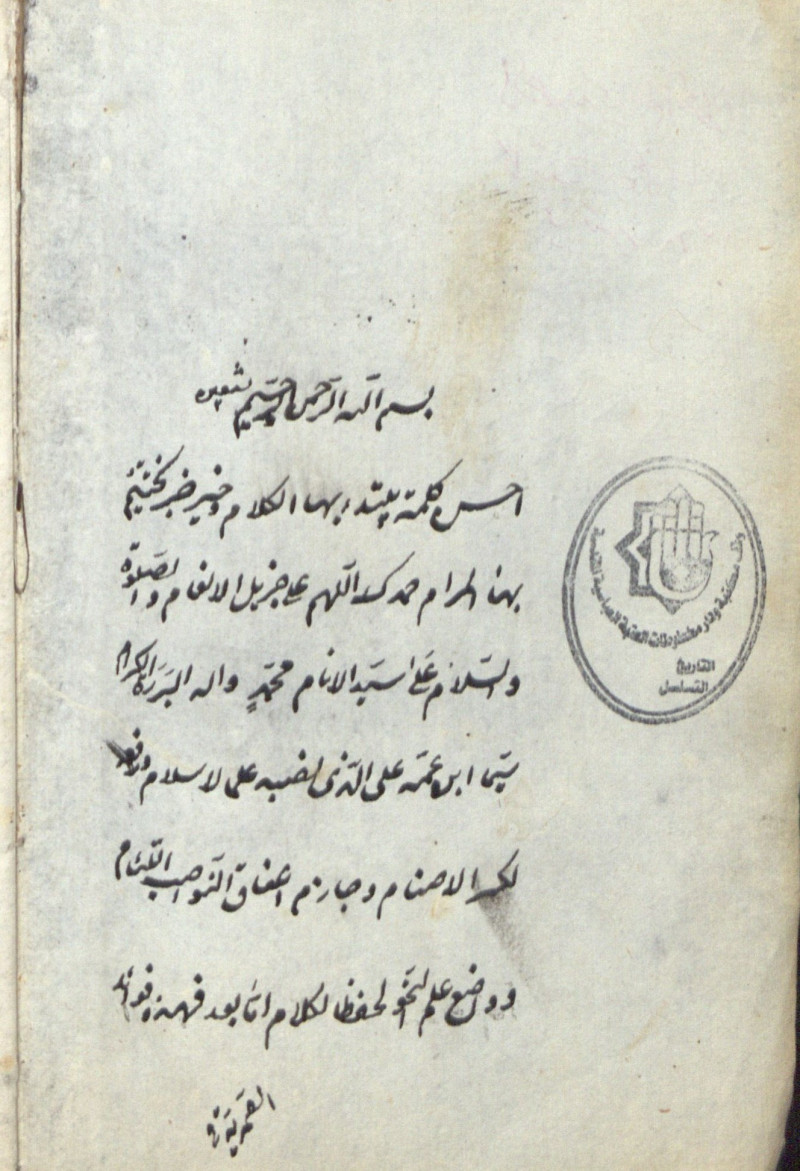 بسم الله الرحمن الرحيم
احسن كلمة يبتدء بها الكلام وخير خبر يختتم
به المرام حمدك اللهم على جزيل الانعام والصلوة
والسّلام عَلى سيّد الانام محمّدٍ واله البررة الكرام
سيّما ابن عمّه علىّ الذى نصبه علما لاسلام ورفعه
لكسر الاصنام وجازم اعناق النّواصب اللّئام
وواضع علم النحو لحفظ الكلام امّا بعد فهذه فوائد
الصّمديّة
مكتبة ودار مخطوطات العتبة العباسية المقدسة
التاريخ
التسلسل